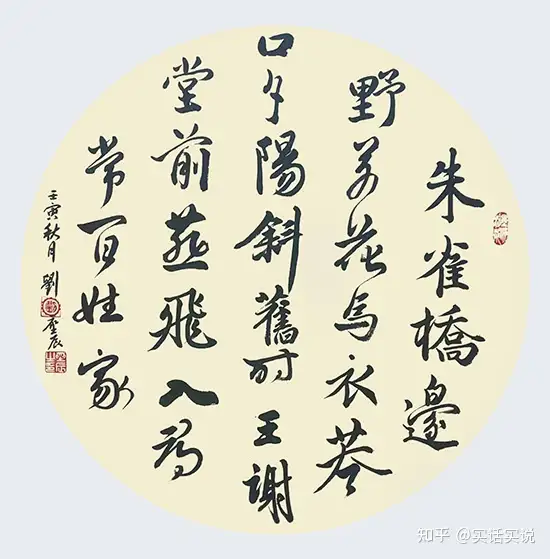 朱雀橋邊
野草花烏衣巷
口夕陽斜舊時王謝
堂前燕飛入尋
常百姓家
壬寅秋月劉奎辰
知乎 @实话实说